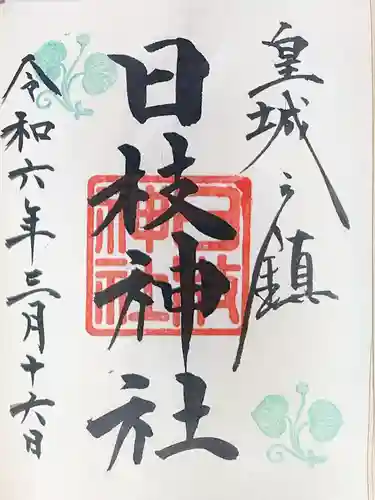 皇城之鎮
日枝神社
日枝神社
令和六年三月十六日